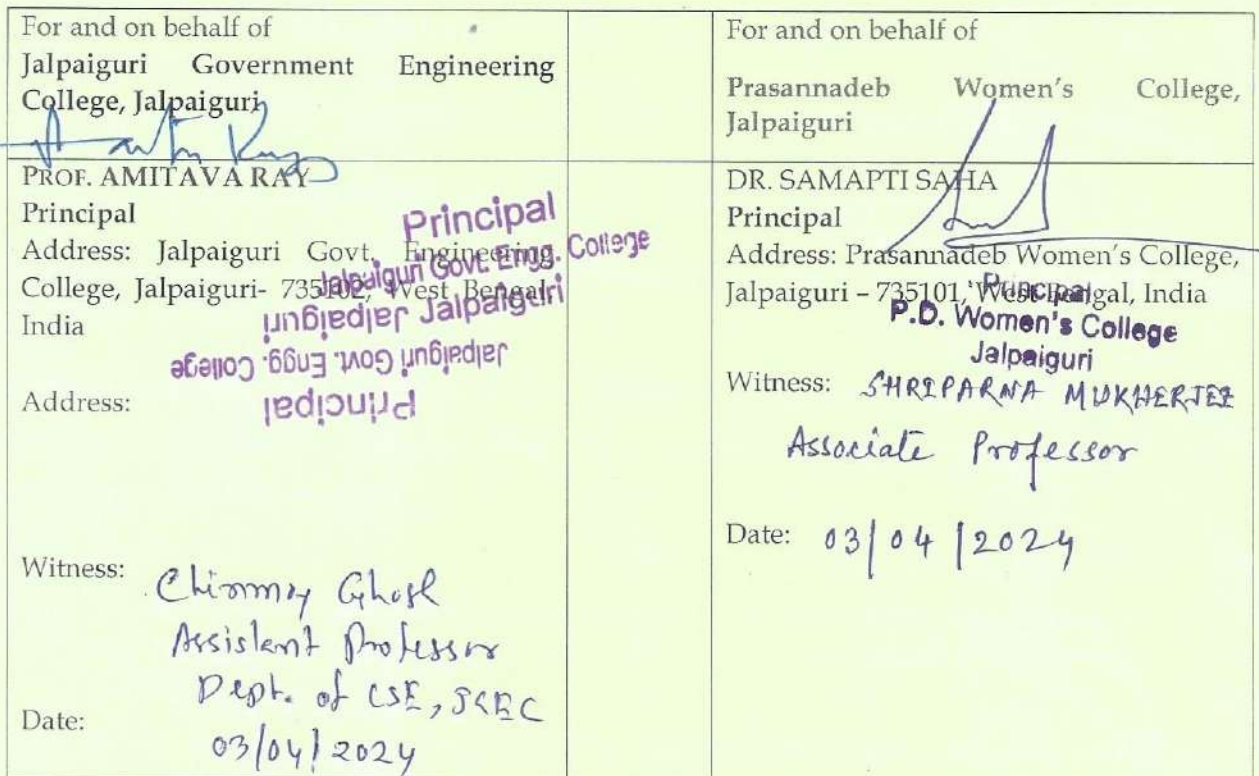 For and on behalf of
Jalpaiguri Government Engineering
College, Jalpaiguri
PROF. AMITAVA RAY
Principal
Address: Jalpaiguri Govt. Engineering
College, Jalpaiguri- 735102, West Bengal,
India
Principal
Jalpaiguri Govt. Engg. College
Jalpaiguri
Jalpaiguri
Jalpaiguri Govt. Engg. College
Principal
Address:
Witness: Chinmoy Ghosh
Assistant Professor
Dept. of CSE, JGEC
Date: 03/04/2024
For and on behalf of
Prasannadeb Women's College,
Jalpaiguri
DR. SAMAPTI SAHA
Principal
Address: Prasannadeb Women's College,
Jalpaiguri – 735101, West Bengal, India
Principal
P.D. Women's College
Jalpaiguri
Witness: SHRIPARNA MUKHERJEE
Associate Professor
Date: 03/04/2024